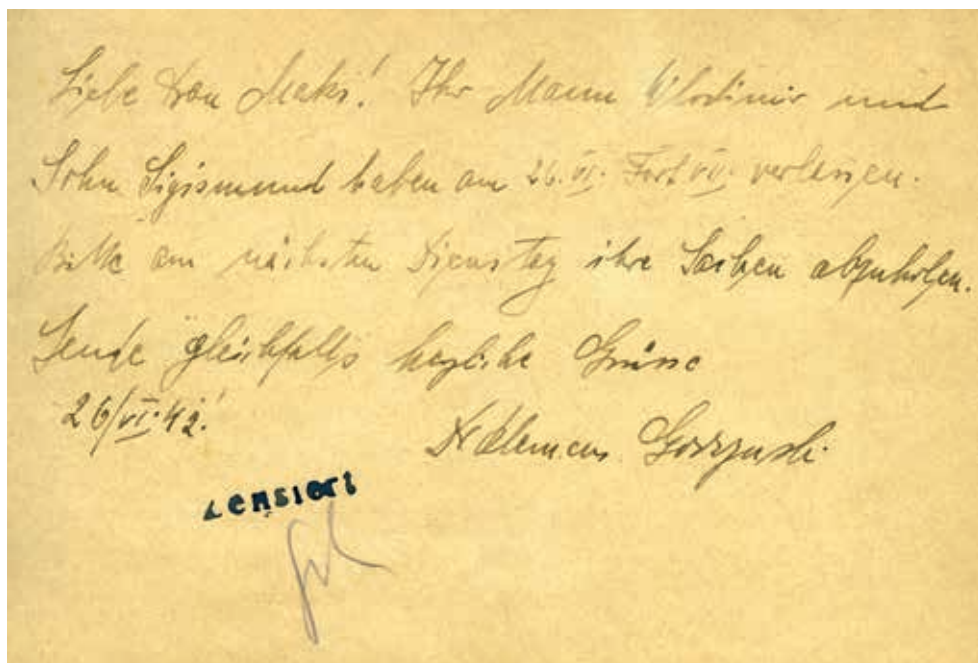 Liebe Frau Maks! Ihr Mann Wlodimir und
Sohn Sigismund haben am 26.VI. Fort VII. verlassen.
Bitte am nächsten Dienstag ihre Sachen abzuholen.
Sende gleichfalls herzliche Grüsse
26/VI.42!
Dr Klemens
Zensiert